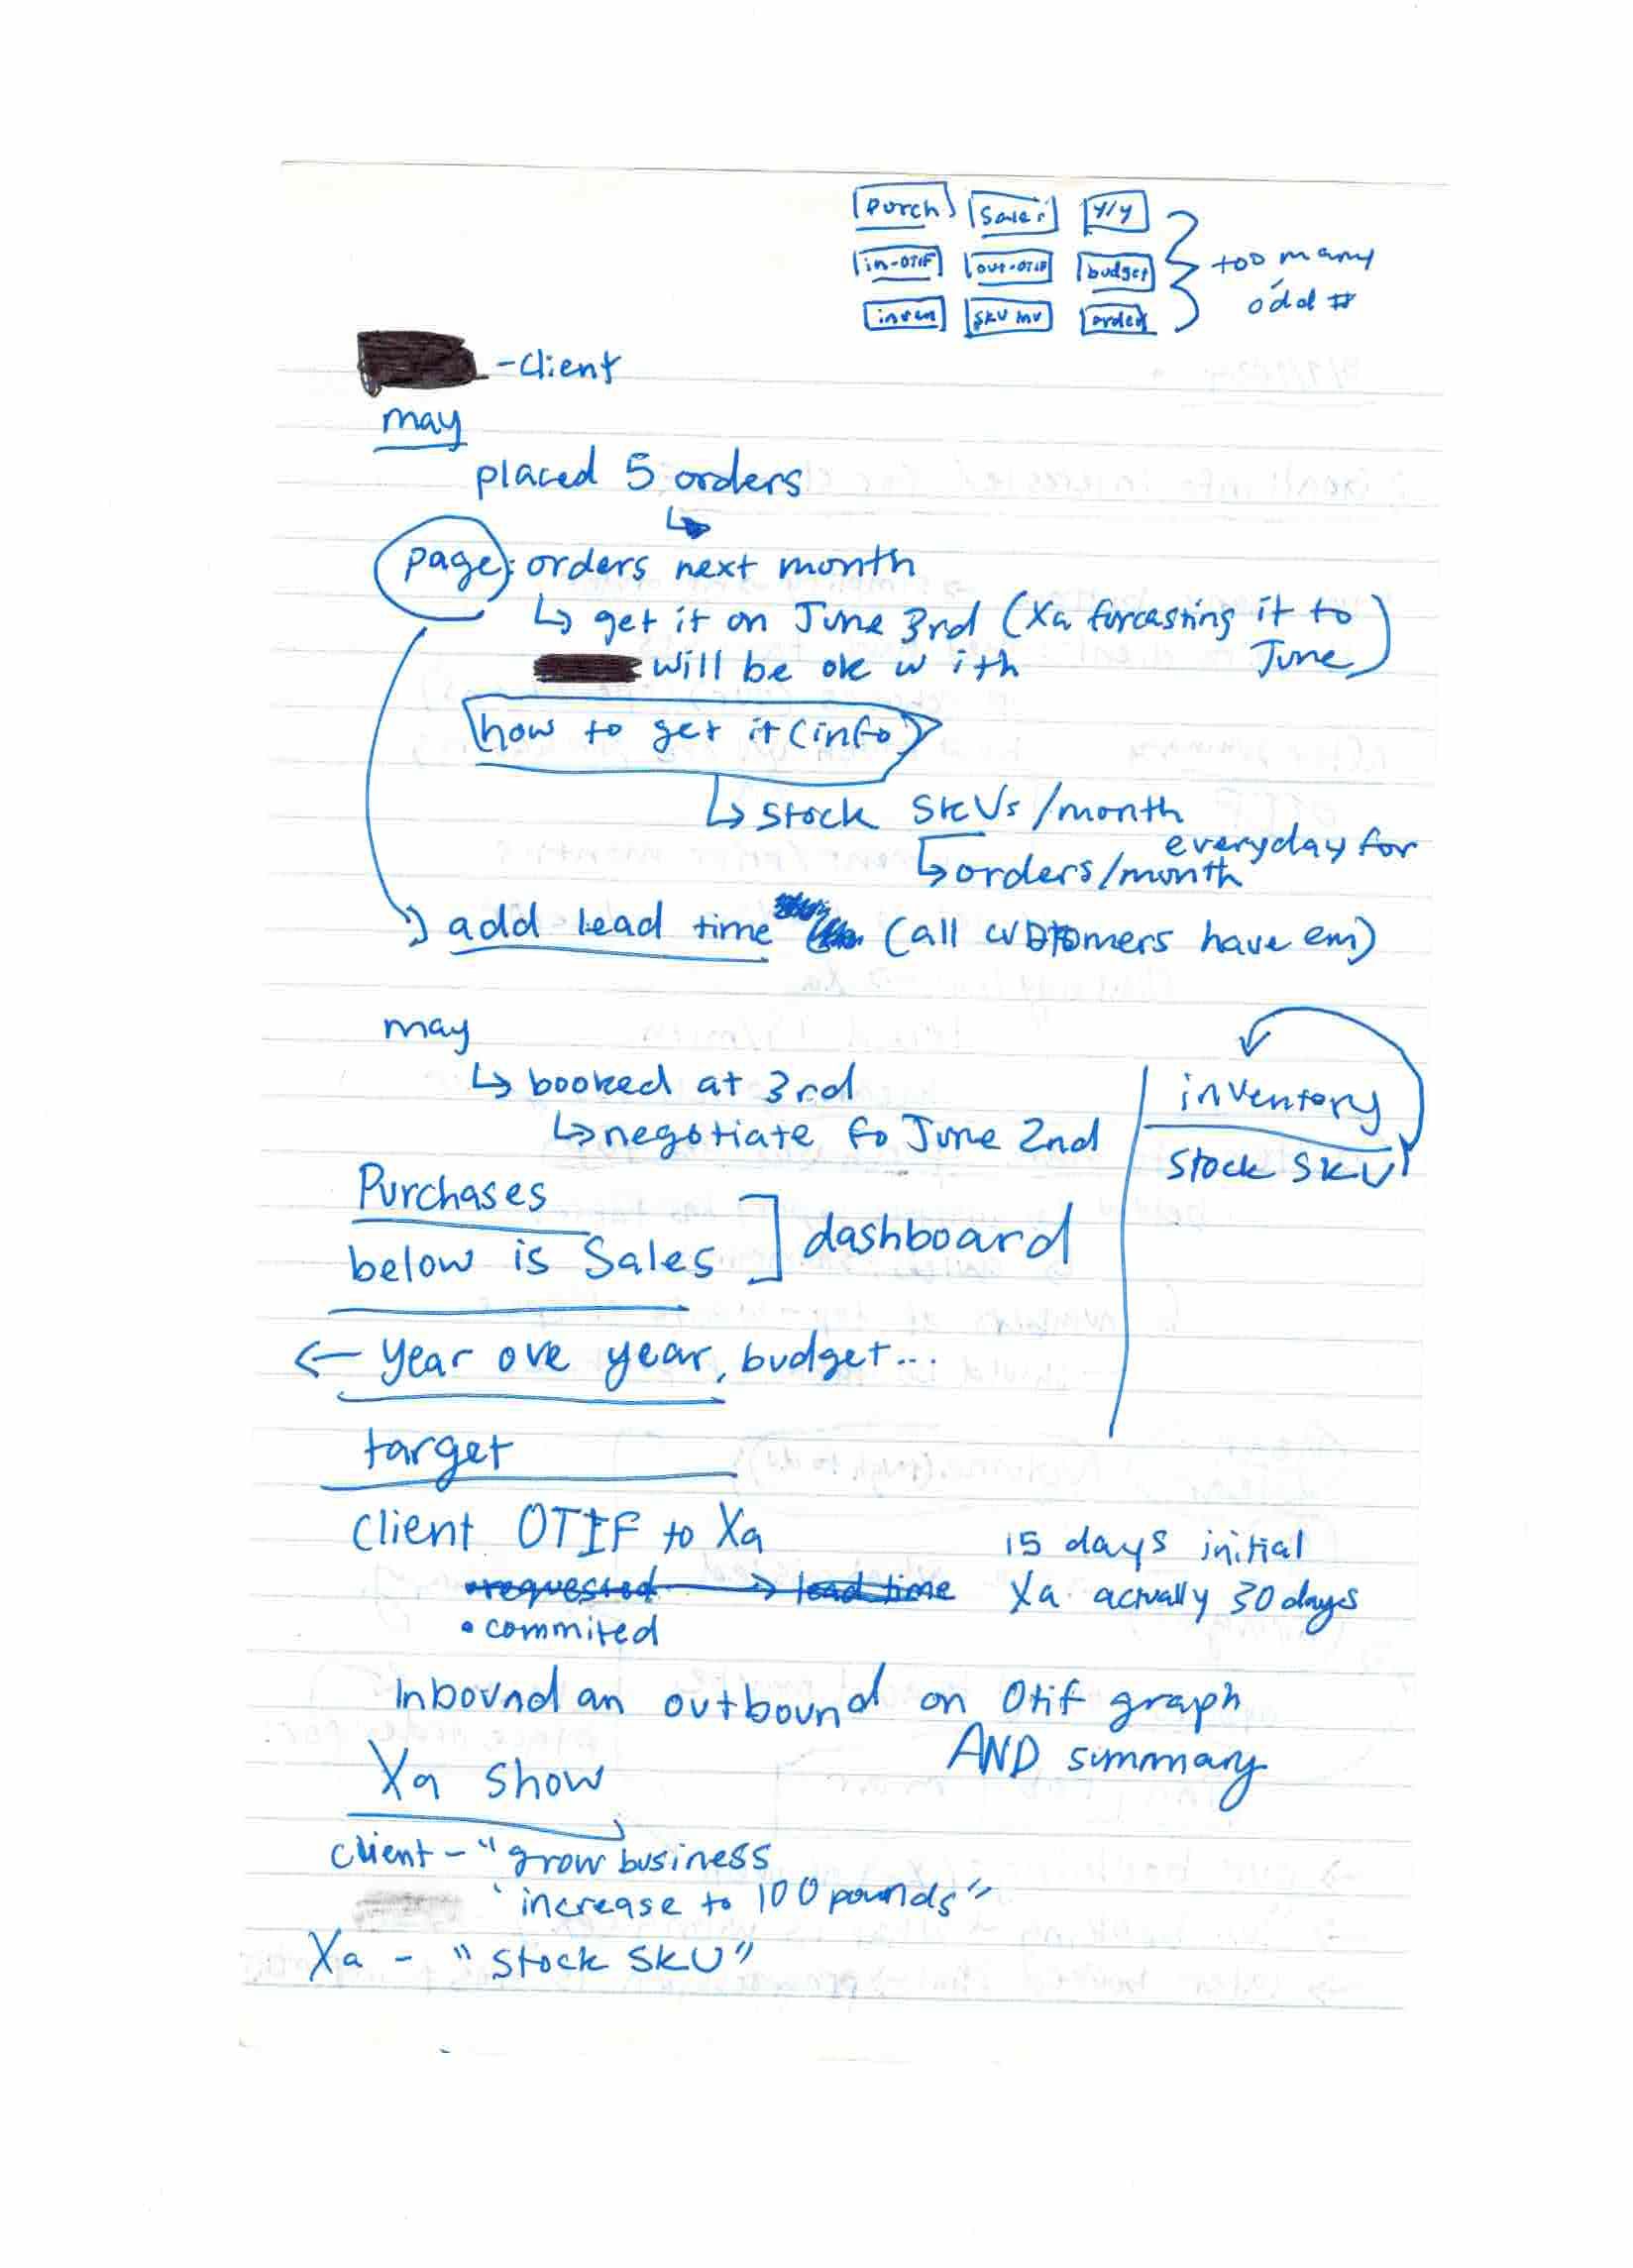 Purch Sales y/y
in-OTIF out-OTIF budget too many
inven SKU inv orded odd #
-client
may
placed 5 orders
page: orders next month
↳ get it on June 3rd (Xa forcasting it to June)
will be ok with
how to get it (info)
↳ stock SKUs/month
everyday for
↳ orders/month
add lead time (all customers have em)
may
↳ booked at 3rd
↳ negotiate to June 2nd
inventory
stock SKU
Purchases
below is Sales ] dashboard
← year ove year, budget...
target
client OTIF to Xa
15 days initial
requested → lead time
Xa actually 30 days
• commited
Inbound an outbound on Otif graph
AND summary
Xa show
client - "grow business
increase to 100 pounds"
Xa - "stock SKU"